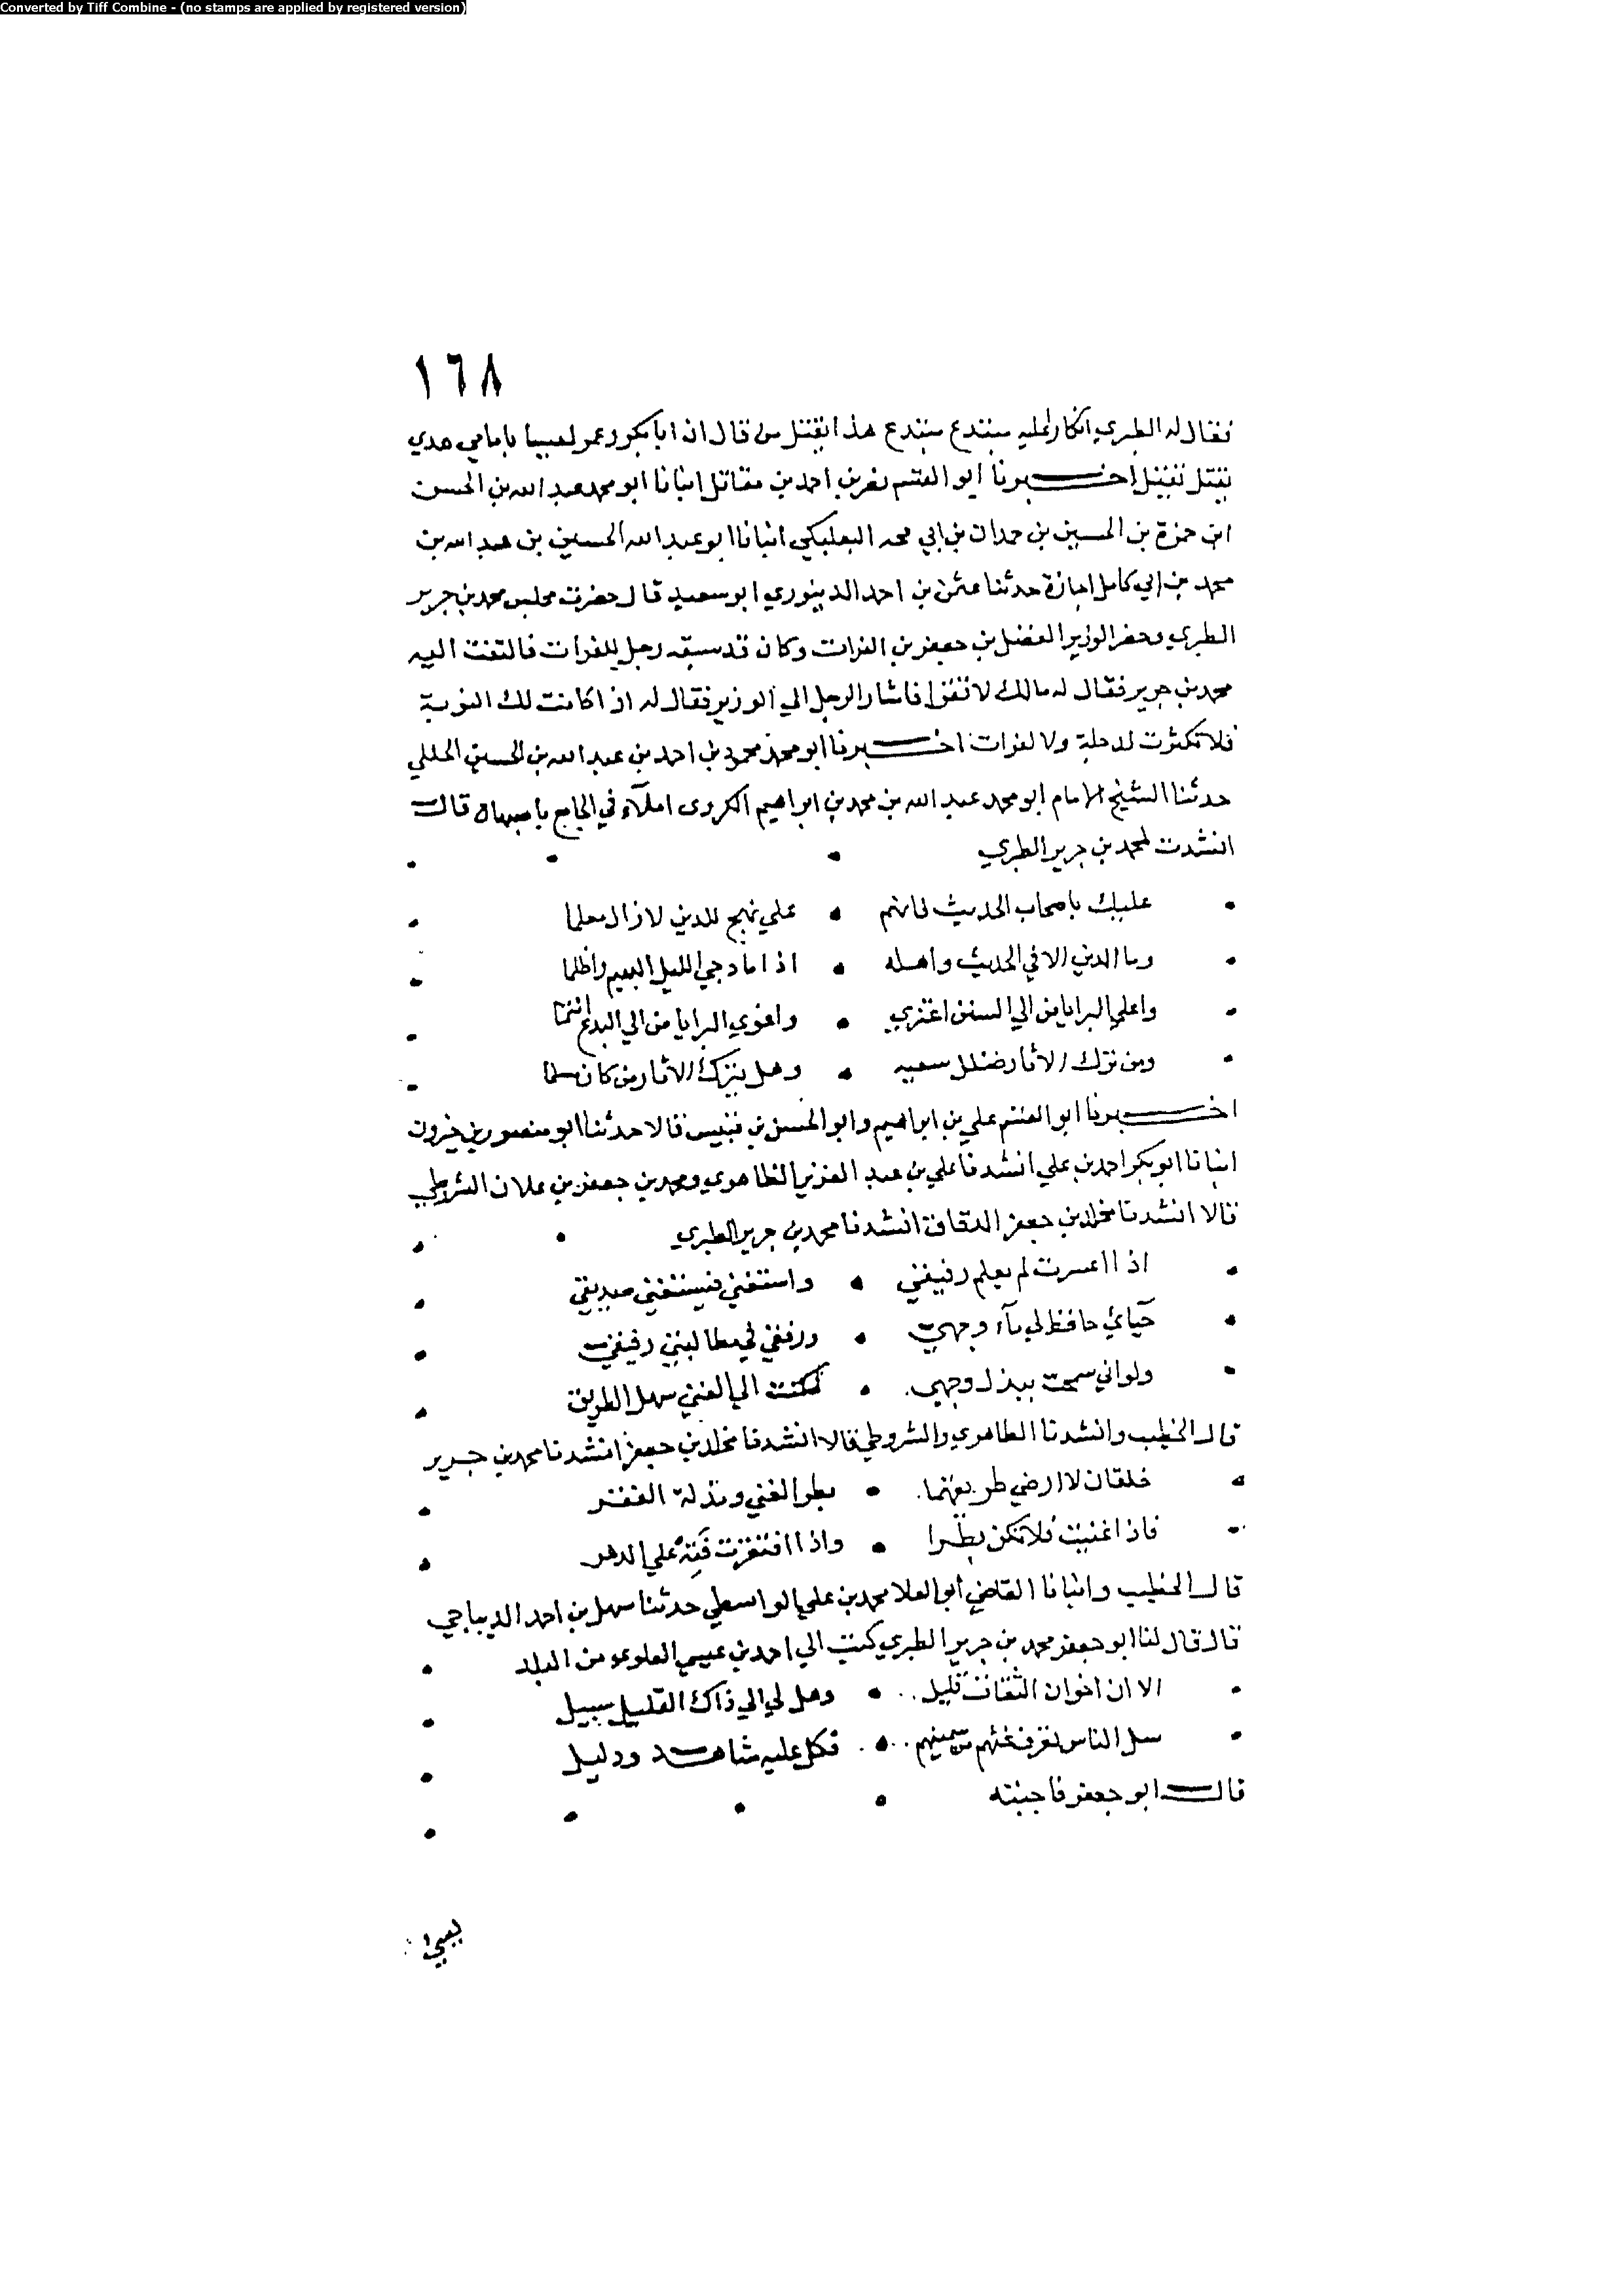 Converted by Tiff Combine - (no stamps are applied by registered version)
١٦٨
فقال له الطبري انكارا عليه مبتدع مبتدع هذا يقتل من قال ان ابا بكر وعمر ليسا بامامي هدي
يقتل يقتل اخبرنا ابو القسم نصر بن احمد بن مقاتل انبانا ابو محمد عبد الله بن الحسن
ابن حمزة بن الحسين بن حمدان بن ابي محمد البعلبكي انبانا ابو عبد الله الحسين بن عبد الله بن
محمد بن ابي كامل اجازة حدثنا عثمن بن احمد الدينوري ابو سعيد قال حضرت مجلس محمد بن جرير
الطبري وحضر الوزير الفضل بن جعفر بن الفرات وكان قد سبقه رجل للفرات فالتفت اليه
محمد بن جرير فقال له مالك لا تقرا فاشار الرجل الي الوزير فقال له اذا كانت لك النوبة
فلا تكترث لدجلة ولا لفرات اخبرنا ابو محمد محمود بن احمد بن عبد الله بن الحسين
حدثنا الشيخ الامام ابو محمد عبد الله بن محمد بن ابراهيم الكروى املآء في الجامع باصبهان قال
انشدت لمحمد بن جرير الطبري
عليك باصحاب الحديث فانهم • علي نهج للدين لا زال معلما
وما الدين الا في الحديث واهله • اذا ما دجي الليل البهيم واظلما
واعلي البرايا من الي السنن اعتزي • واغوي البرايا من الي البدع انتما
ومن ترك الاثار ضلل سعيه • وهل يترك الاثار من كان مسلما
اخبرنا ابو القسم علي بن ابراهيم وابو الحسن بن قبيس قالا حدثنا ابو منصور بن خيرون
انبانا ابو بكر احمد بن علي انشدنا علي بن عبد العزيز الظاهري ومحمد بن جعفر بن علان الشروطي
قالا انشدنا مخلد بن جعفر الدقاق انشدنا محمد بن جرير الطبري
اذا اعسرت لم يعلم رفيقي • واستغني فيستغني صديقي
حيائي حافظ لي مآء وجهي • ورفقي في مطالبتي رفيقي
ولو اني سمحت ببذل وجهي • لكنت الي الغني سهل الطريق
قال الخطيب وانشدنا الطاهري والشروطي قالا انشدنا مخلد بن جعفر انشدنا محمد بن جرير
خلقان لا ارضي طريقهما • بطر الغني ومذلة الفقر
فاذا غنيت فلا تكن بطرا • واذا افتقرت فته علي الدهر
قال الخطيب وانبانا القاضي ابو العلا محمد بن علي الواسطي حدثنا سهل بن احمد الديباجي
قال قال لنا ابو جعفر محمد بن جرير الطبري كتب الي احمد بن عيسي العلوي من البلد
الا ان اخوان الثقات قليل • وهل لي الي ذاك القليل سبيل
سل الناس تعرف غثهم من سمينهم • فكل عليه شاهد ودليل
قال ابو جعفر فاجبته